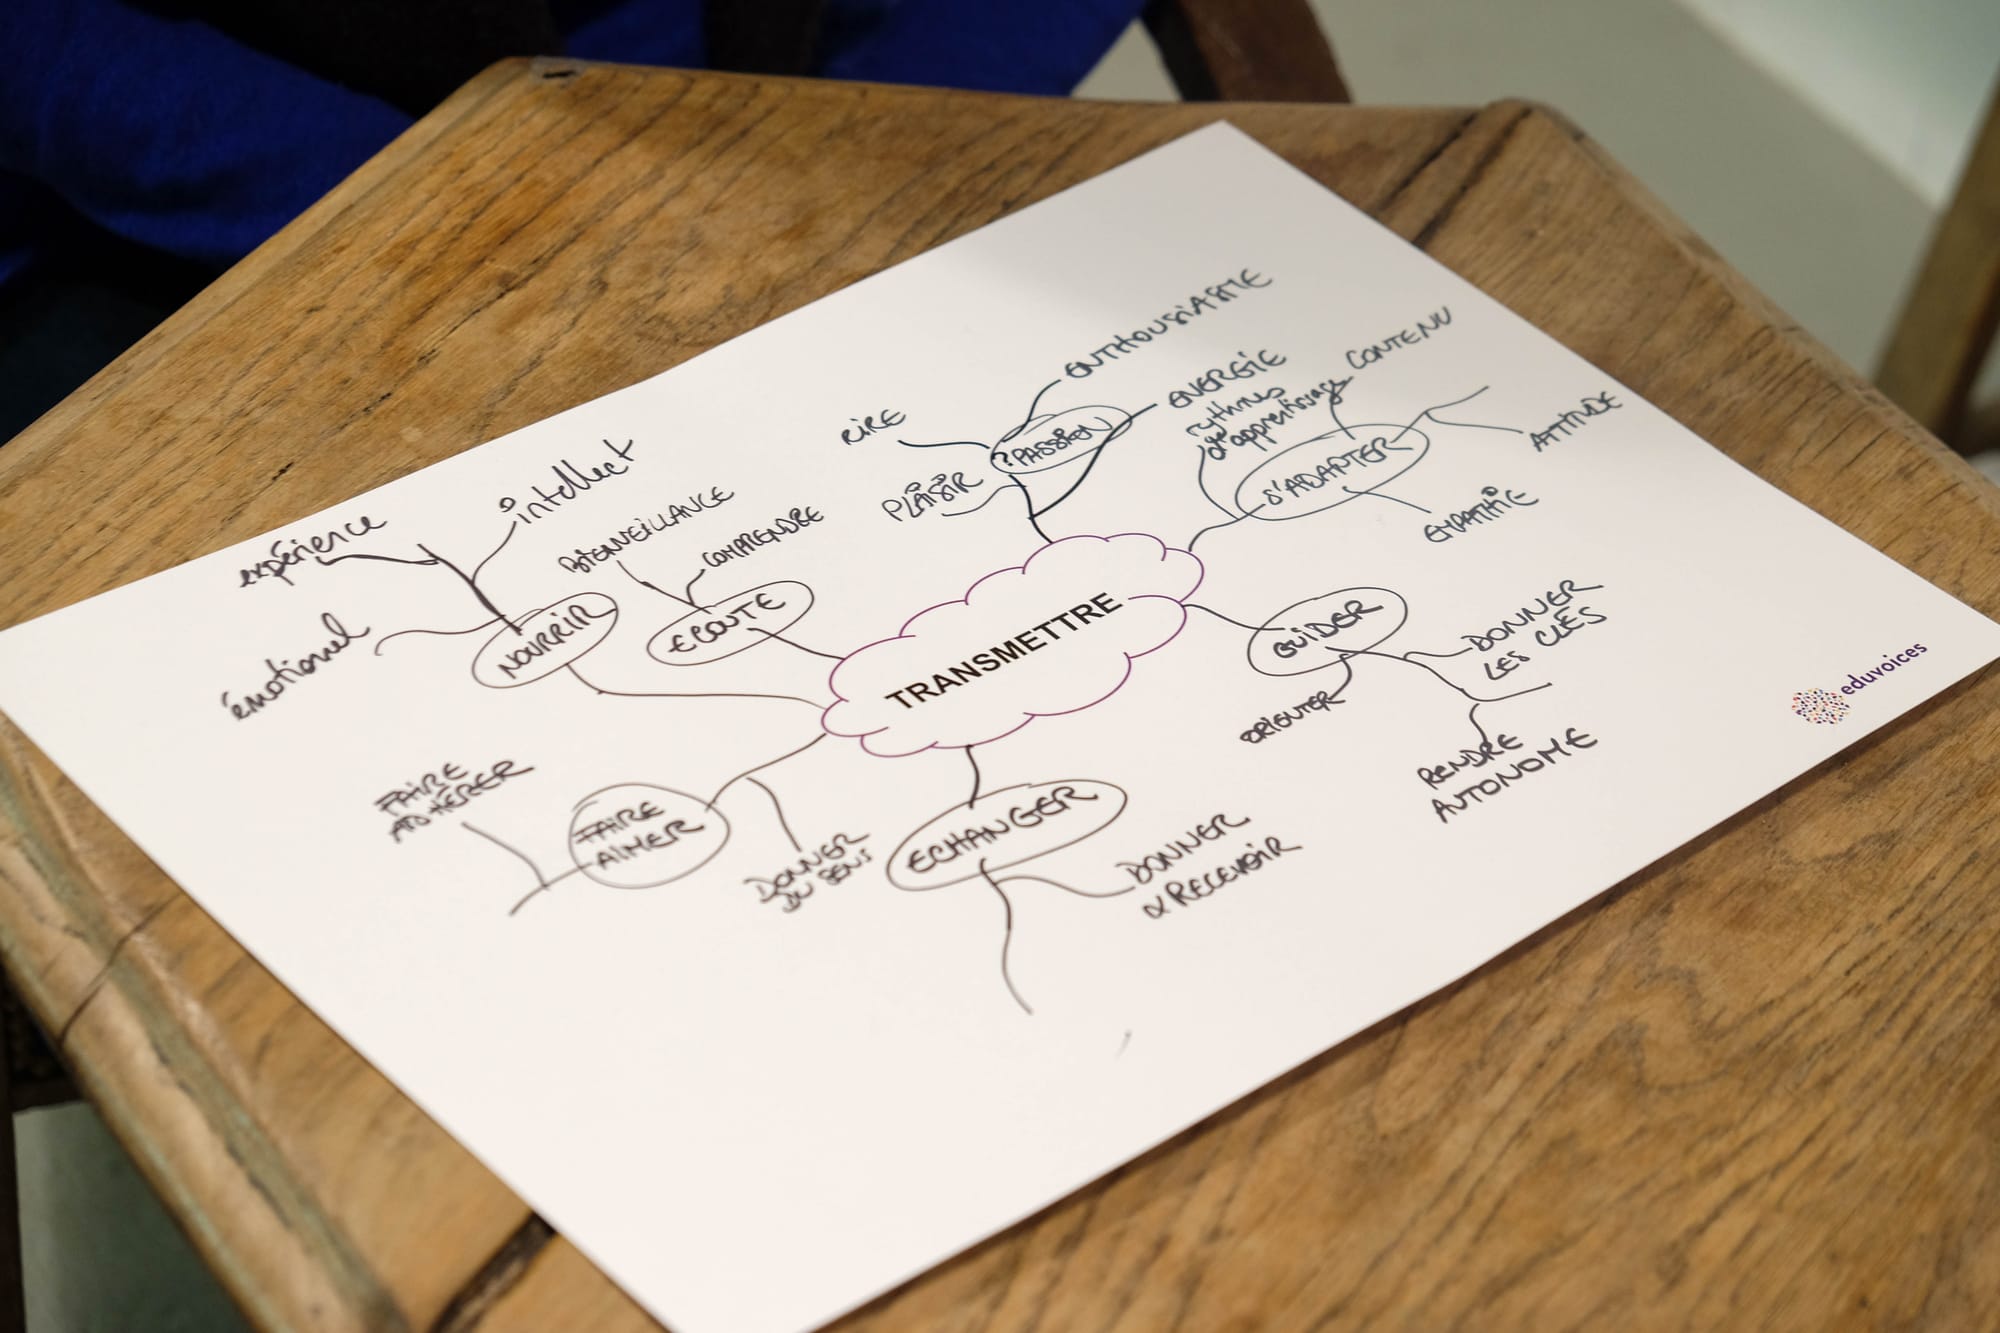 TRANSMETTRE
? PASSION
RIRE
PLAISIR
ENTHOUSIASTE
ENERGIE
S'ADAPTER
rythmes
d'apprentissage
CONTENU
ATTITUDE
EMPATHIE
GUIDER
ORIENTER
DONNER
LES CLÉS
RENDRE
AUTONOME
ECHANGER
DONNER
& RECEVOIR
FAIRE
AIMER
DONNER
DU SENS
FAIRE
ADHÉRER
NOURRIR
émotionnel
expérience
intellect
ECOUTE
BIENVEILLANCE
COMPRENDRE
eduvoices